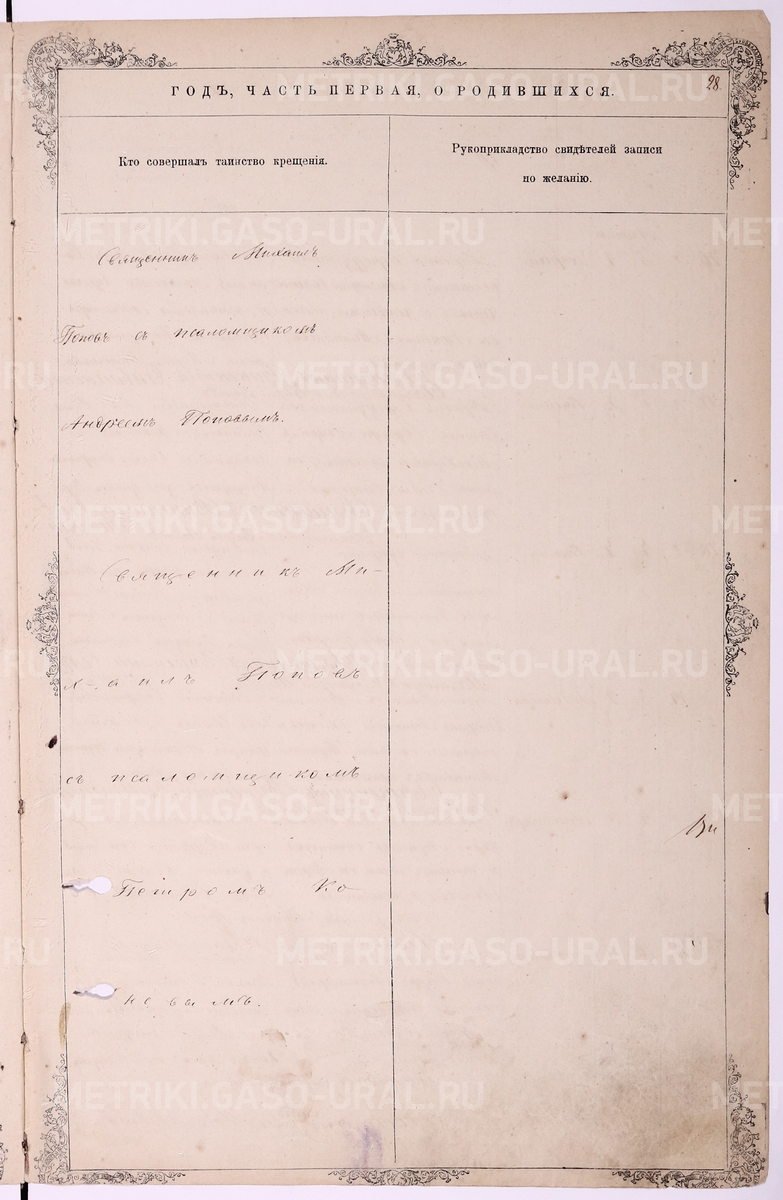 ГОДЪ, ЧАСТЬ ПЕРВАЯ, О РОДИВШИХСЯ.
28.
Кто совершалъ таинство крещенія.
Рукоприкладство свидѣтелей записи
по желанію.
Священникъ Михаилъ
Поповъ съ псаломщикомъ
Андреемъ Поповымъ.
Священникъ Ми-
хаилъ Поповъ
съ псаломщикомъ
Петромъ Ко
METRIKI.GASO-URAL.RU